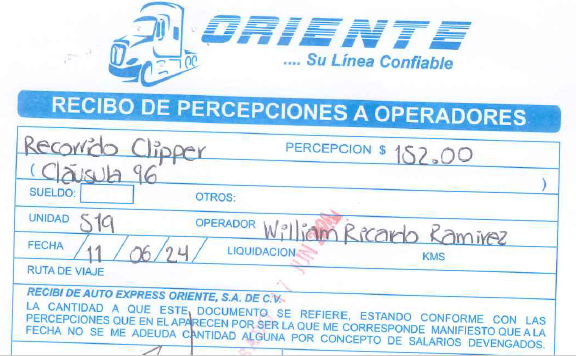 ORIENTE
.... Su Línea Confiable
RECIBO DE PERCEPCIONES A OPERADORES
Recorrido Clipper PERCEPCION $ 152.00
( Cláusula 96 )
SUELDO: OTROS:
UNIDAD 519 OPERADOR William Ricardo Ramirez
FECHA 11 / 06 / 24 / LIQUIDACION KMS
RUTA DE VIAJE
RECIBI DE AUTO EXPRESS ORIENTE, S.A. DE C.V.
LA CANTIDAD A QUE ESTE DOCUMENTO SE REFIERE, ESTANDO CONFORME CON LAS
PERCEPCIONES QUE EN EL APARECEN POR SER LA QUE ME CORRESPONDE MANIFIESTO QUE A LA
FECHA NO SE ME ADEUDA CANTIDAD ALGUNA POR CONCEPTO DE SALARIOS DEVENGADOS.